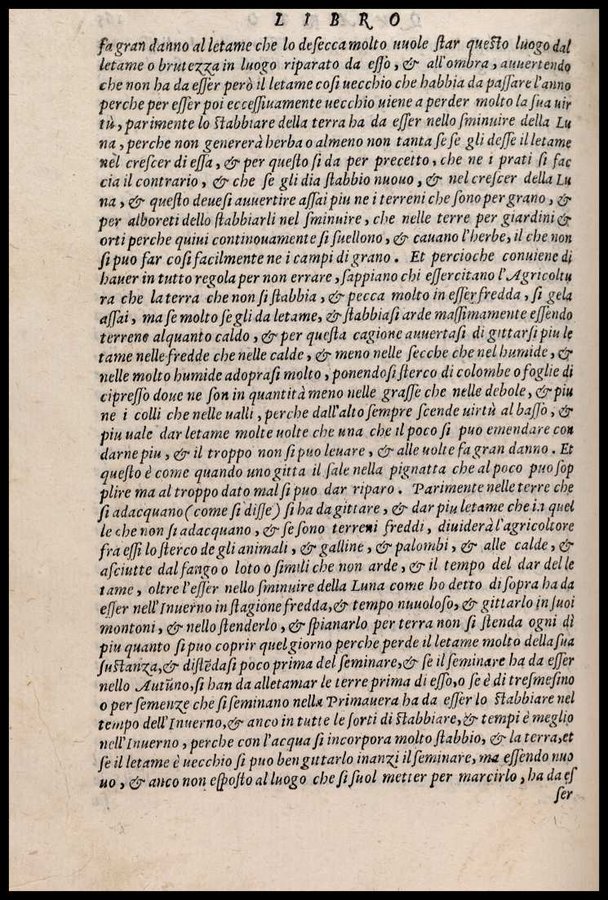 LIBRO
fa gran danno al letame che lo desecca molto uuole star questo luogo dal
letame o brutezza in luogo riparato da esso, & all'ombra, auuertendo
che non ha da esser però il letame cosi uecchio che habbia da passare l'anno
perche per esser poi eccessiuamente uecchio uiene a perder molto la sua uir
tù, parimente lo stabbiare della terra ha da esser nello sminuire della Lu
na, perche non genererà herba o almeno non tanta se se gli desse il letame
nel crescer di essa, & per questo si da per precetto, che ne i prati si fac
cia il contrario, & che se gli dia stabbio nuouo, & nel crescer della Lu
na, & questo deuesi auuertire assai piu ne i terreni che sono per grano, &
per alboreti dello stabbiarli nel sminuire, che nelle terre per giardini &
orti perche quiui continouamente si suellono, & cauano l'herbe, il che non
si puo far cosi facilmente ne i campi di grano. Et percioche conuiene di
hauer in tutto regola per non errare, sappiano chi essercitano l'Agricoltu
ra che la terra che non si stabbia, & pecca molto in esser fredda, si gela
assai, ma se molto se gli da letame, & stabbiasi arde massimamente essendo
terreno alquanto caldo, & per questa cagione auuertasi di gittarsi piu le
tame nelle fredde che nelle calde, & meno nelle secche che nel humide, &
nelle molto humide adoprasi molto, ponendosi sterco di colombe o foglie di
cipresso doue ne son in quantità meno nelle grasse che nelle debole, & piu
ne i colli che nelle ualli, perche dall'alto sempre scende uirtù al basso, &
piu uale dar letame molte uolte che una che il poco si puo emendare con
darne piu, & il troppo non si puo leuare, & alle uolte fa gran danno. Et
questo è come quando uno gitta il sale nella pignatta che al poco puo sop
plire ma al troppo dato mal si puo dar riparo. Parimente nelle terre che
si adacquano (come si disse) si ha da gittare, & dar piu letame che in quel
le che non si adacquano, & se sono terreni freddi, diuiderà l'agricoltore
fra essi lo sterco de gli animali, & galline, & palombi, & alle calde, &
asciutte dal fango o loto o simili che non arde, & il tempo del dar del le
tame, oltre l'esser nello sminuire della Luna come ho detto di sopra ha da
esser nell'Inuerno in stagione fredda, & tempo nuuoloso, & gittarlo in suoi
montoni, & nello stenderlo, & spianarlo per terra non si stenda ogni dì
piu quanto si puo coprir quel giorno perche perde il letame molto della sua
sustanza, & distēdasi poco prima del seminare, & se il seminare ha da esser
nello Autūno, si han da alletamar le terre prima di esso, o se è di tresmesino
o per semenze che si seminano nella Primauera ha da esser lo stabbiare nel
tempo dell'Inuerno, & anco in tutte le sorti di stabbiare, & tempi è meglio
nell'Inuerno, perche con l'acqua si incorpora molto stabbio, & la terra, et
se il letame è uecchio si puo ben gittarlo inanzi il seminare, ma essendo nuo
uo, & anco non esposto al luogo che si suol metter per marcirlo, ha da es
ser